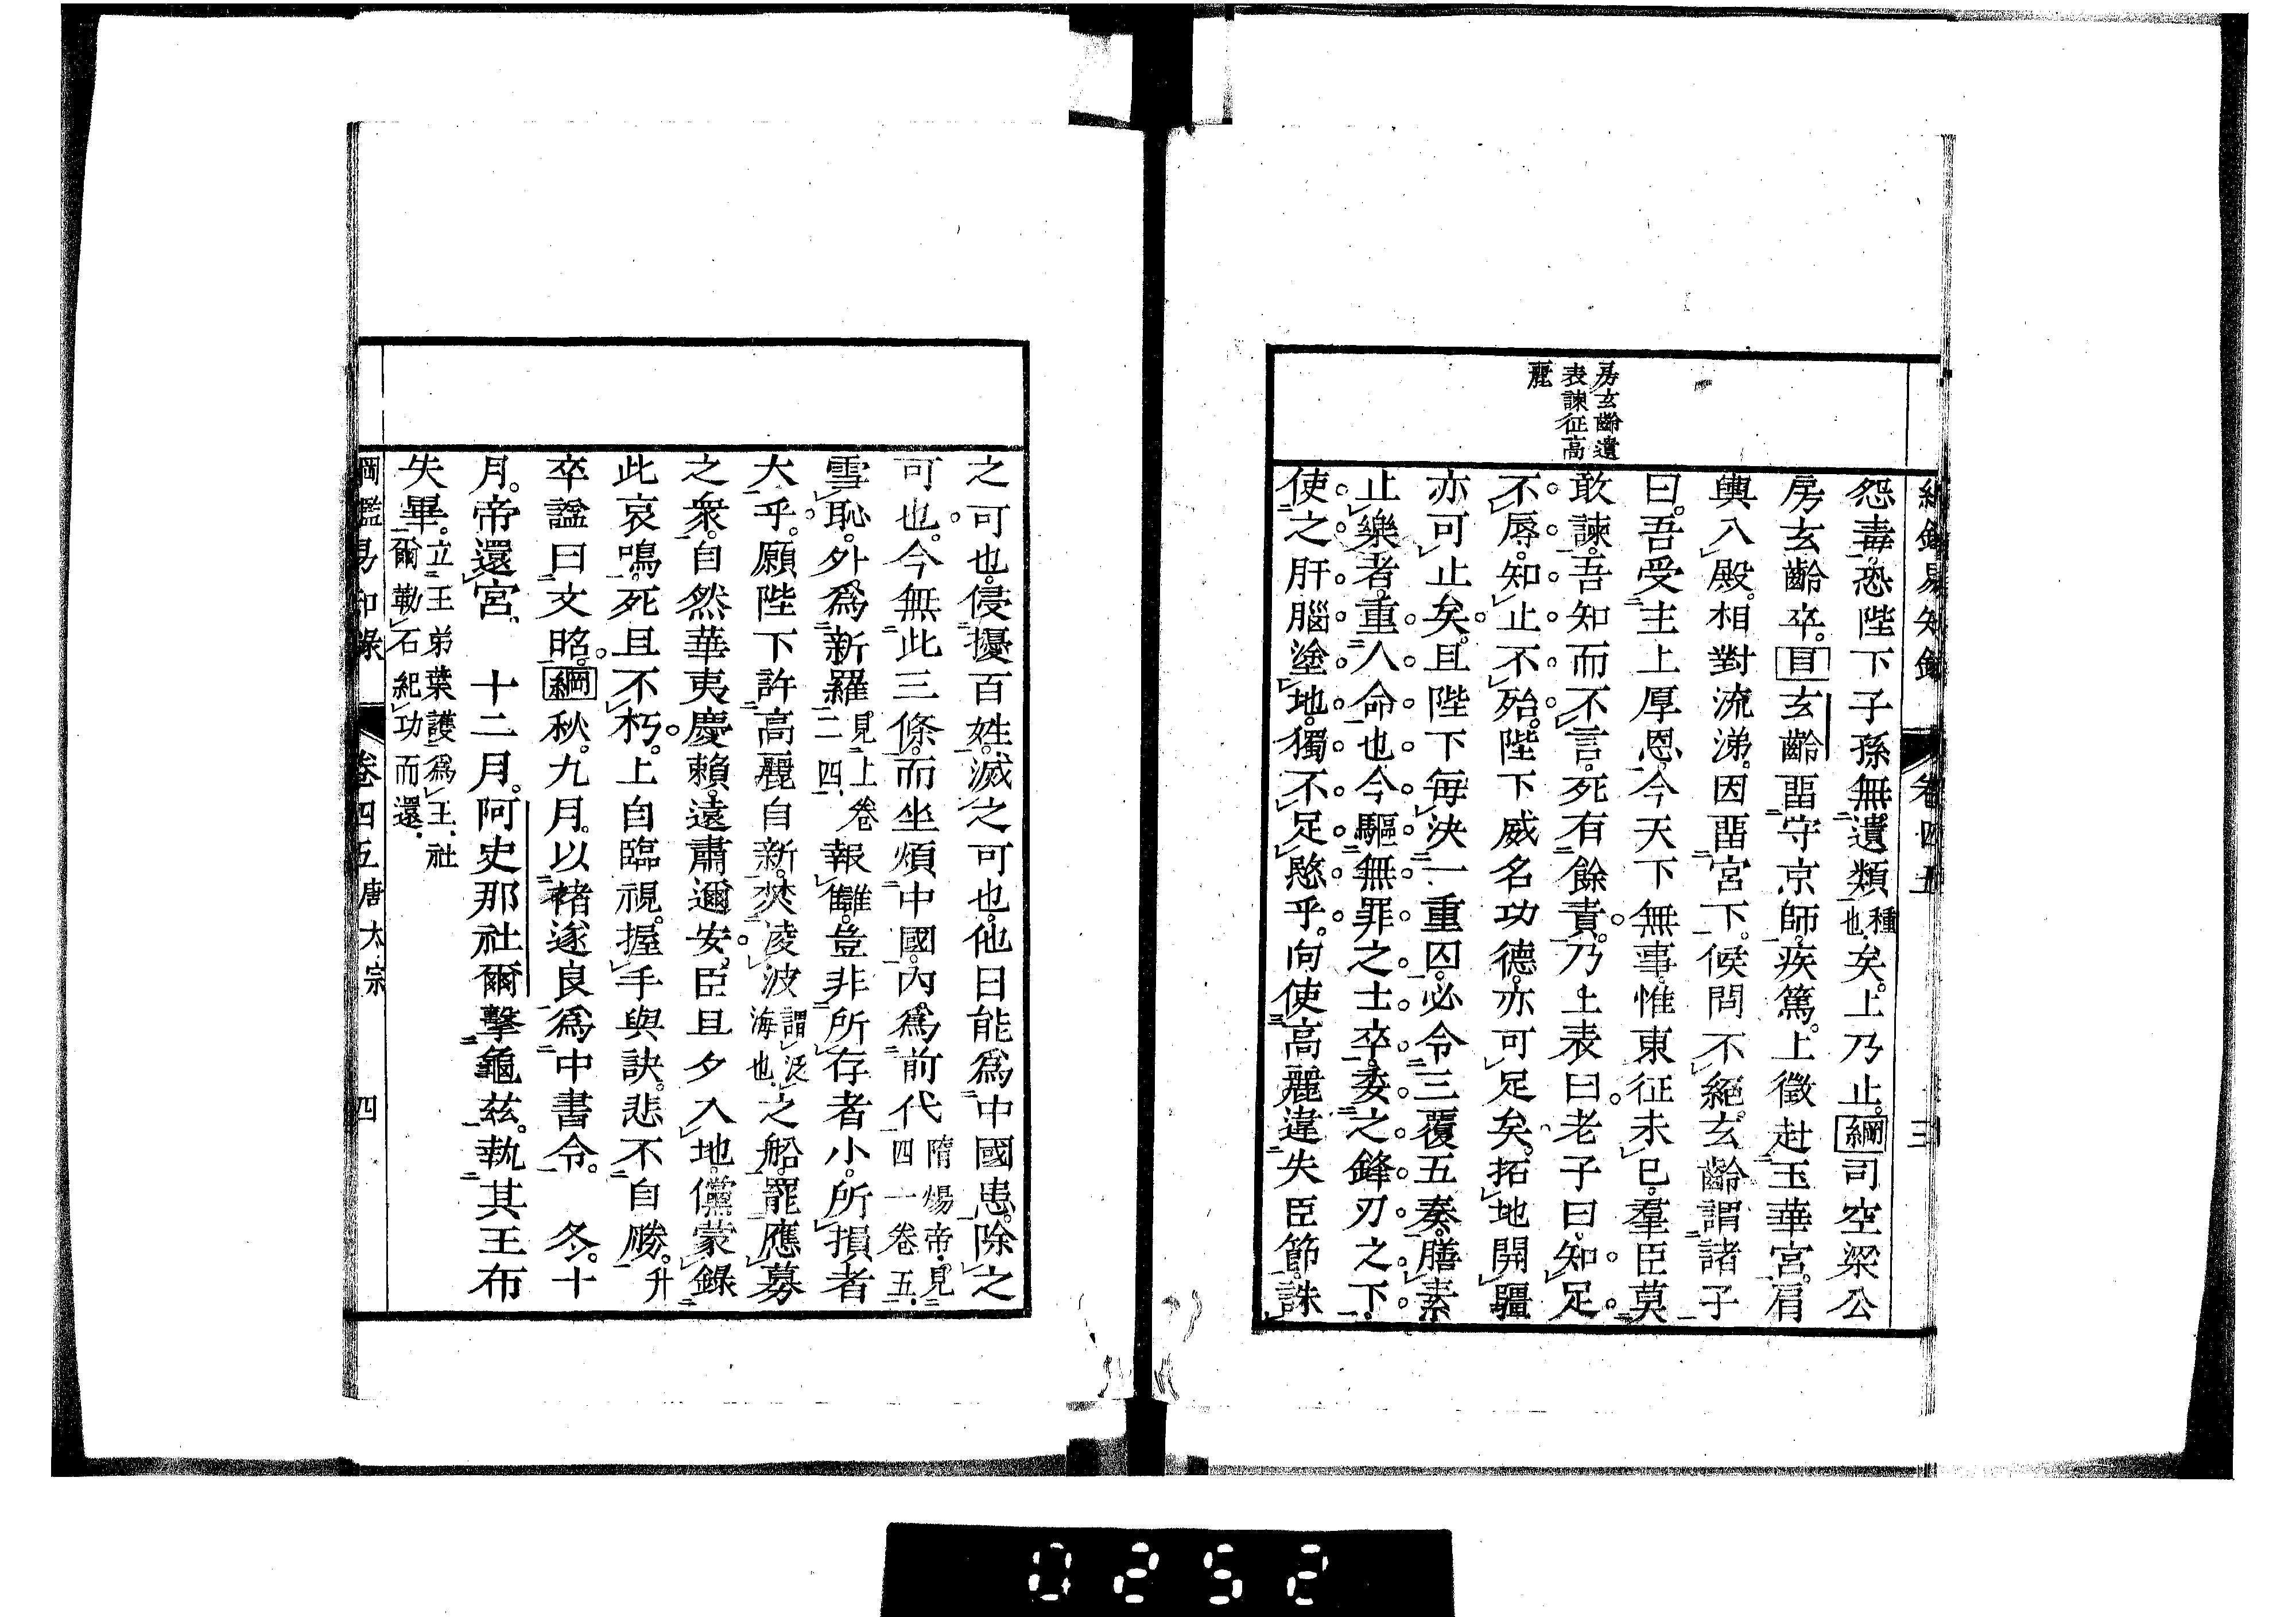 綱鑑易知錄 卷四五 三
房玄齡遺
表諫征高
麗
怨毒。恐陛下子孫無遺類種也。矣。上乃止。綱司空梁公
房玄齡卒。目玄齡畱守京師。疾篤。上徵赴玉華宮。肩
輿入殿。相對流涕。因畱宮下。候問不絕。玄齡謂諸子
曰。吾受主上厚恩。今天下無事。惟東征未已。羣臣莫
敢諫。吾知而不言。死有餘責。乃上表曰。老子曰。知足
不辱。知止不殆。陛下威名功德。亦可足矣。拓地開疆
亦可止矣。且陛下每決一重囚。必令三覆五奏。膳素
止樂者。重人命也。今驅無罪之士卒。委之鋒刃之下。
使之肝腦塗地。獨不足愍乎。向使高麗違失臣節。誅
之可也。侵擾百姓。滅之可也。他日能爲中國患。除之
可也。今無此三條。而坐煩中國。內爲前代隋煬帝。見四一卷五。
雪恥。外爲新羅見上卷二四。報讎。豈非所存者小。所損者
大乎。願陛下許高麗自新。焚凌波謂泛海也。之船。罷應募
之衆。自然華夷慶賴。遠肅邇安。臣旦夕入地。儻蒙錄
此哀鳴。死且不朽。上自臨視。握手與訣。悲不自勝。升
卒諡曰文昭。綱秋。九月。以褚遂良爲中書令。 冬。十
月。帝還宮。 十二月。阿史那社爾擊龜茲。執其王布
失畢。立王弟葉護爲王。社爾勒石紀功而還。
綱鑑易知錄 卷四五 唐太宗 四
0252